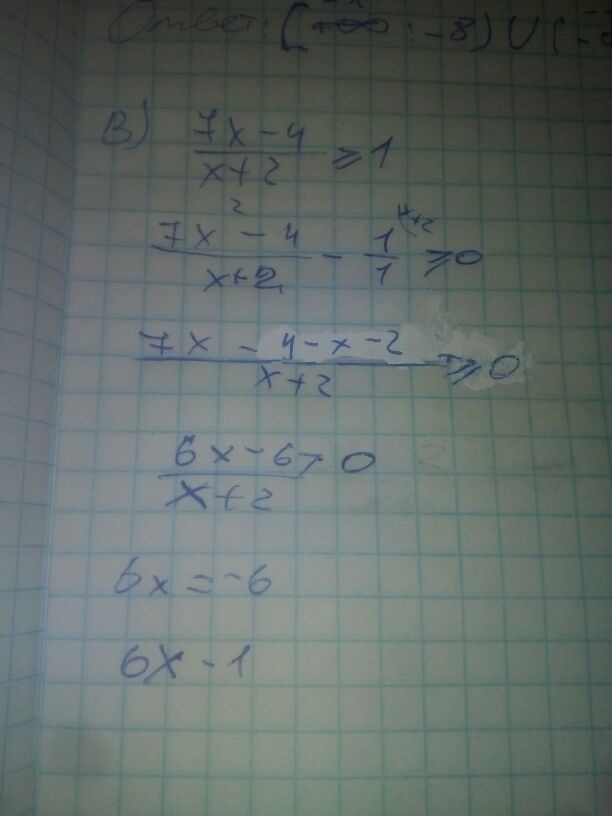 Ответ: (-∞ : -8) ∪ (-
В) 7x-4 / x+2 ⩾ 1
7x - 4 / x+2 - 1 / 1 x+2 ⩾ 0
7x - 4-x-2 / x+2 ⩾ 0
6x-6 / x+2 > 0
6x = -6
6x - 1